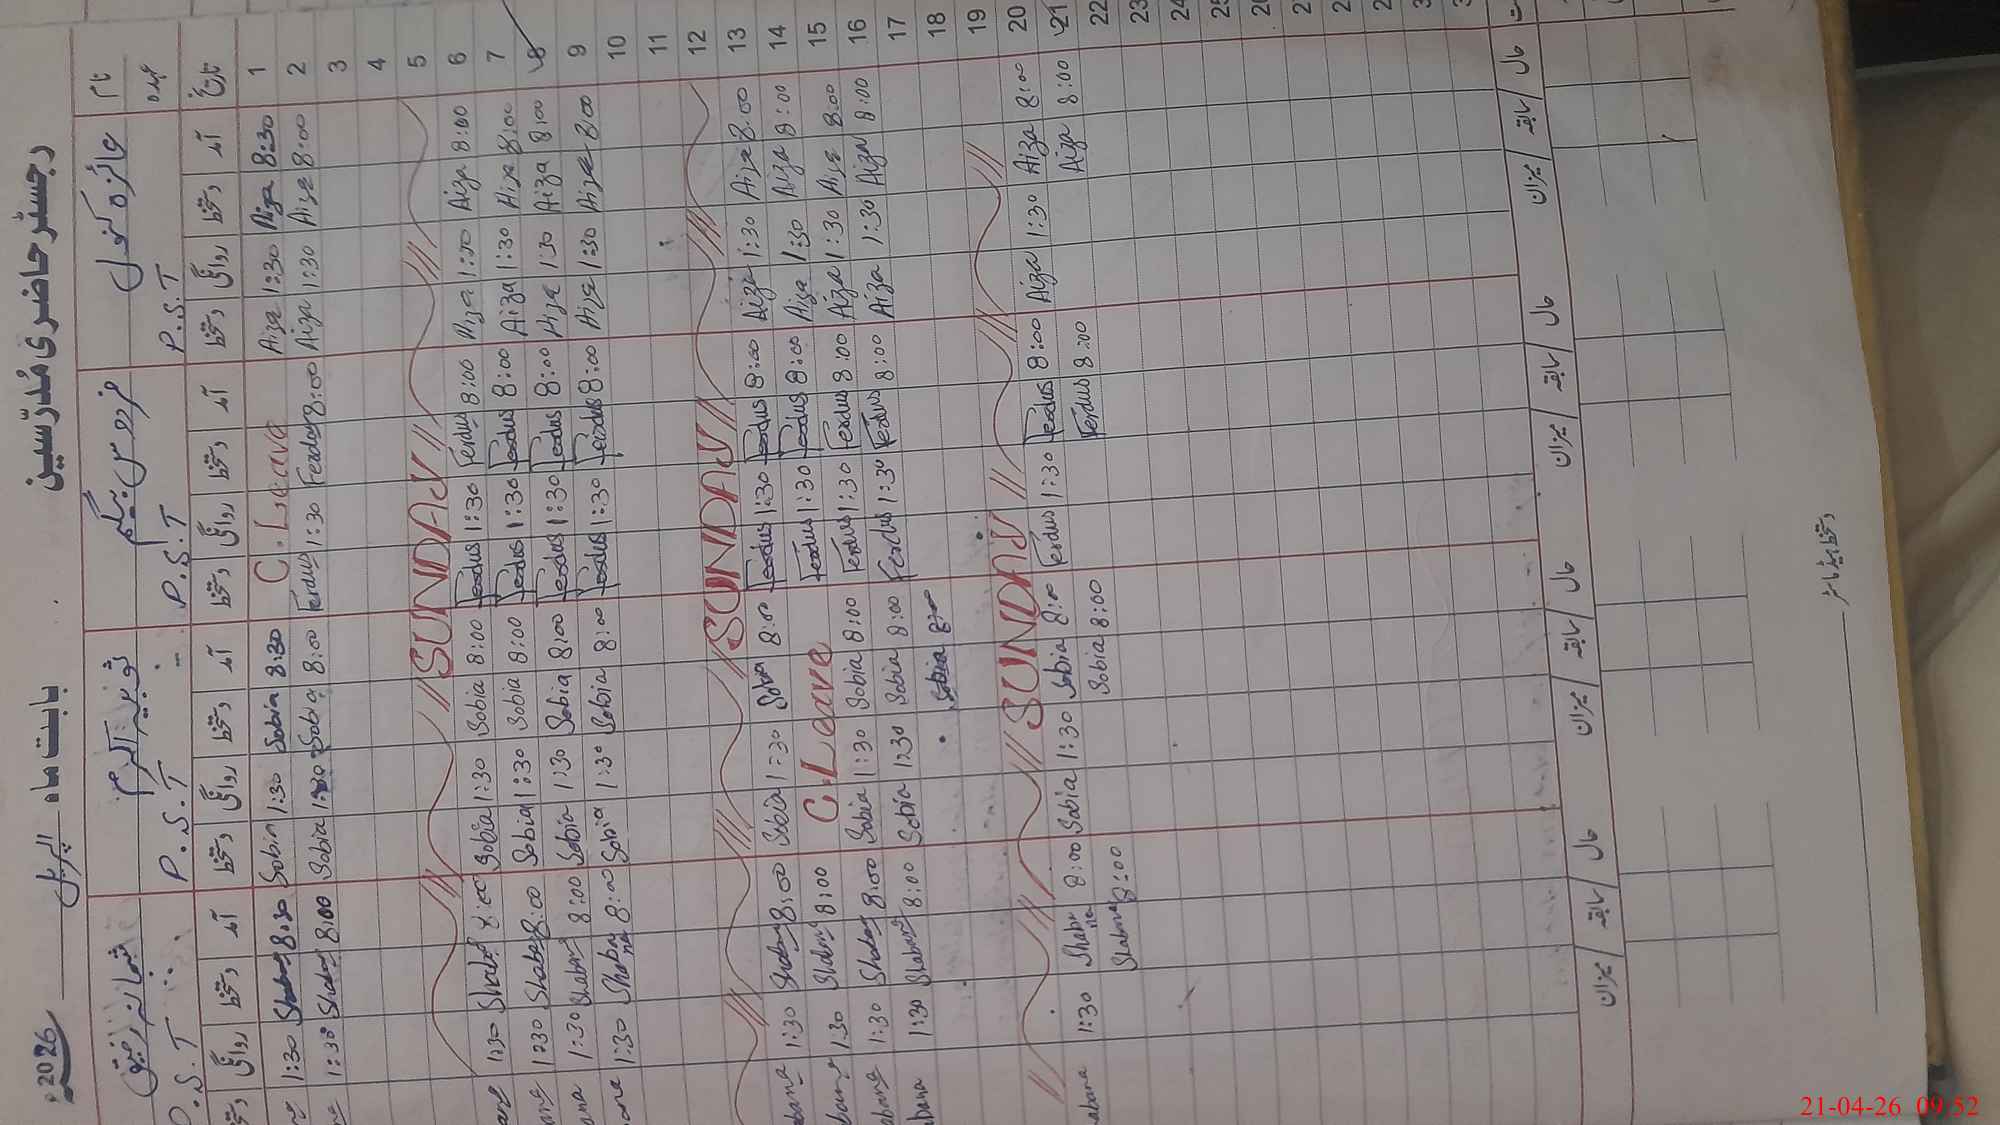 رجسٹر حاضری مُدرّسین
بابت ماہ اپریل 2026ء
نام عائزہ کنول فردوس بیگم ثوبیہ اکرم شبانہ رفیق
عہدہ P.S.T P.S.T P.S.T P.S.T
تاریخ آمد دستخط روانگی دستخط آمد دستخط روانگی دستخط آمد دستخط روانگی دستخط آمد دستخط روانگی دستخط
1 8:30 Aiza 1:30 Aiza C.Leave 8:30 Sobia 1:30 Sobia 8:30 Shabana 1:30
2 8:00 Aiza 1:30 Aiza 8:00 Ferdus 1:30 Ferdus 8:00 Sobia 1:30 Sobia 8:00 Shabana 1:30
3
4
5 SUNDAY
6 8:00 Aiza 1:30 Aiza 8:00 Ferdus 1:30 Ferdus 8:00 Sobia 1:30 Sobia 8:00 Shabana 1:30
7 8:00 Aiza 1:30 Aiza 8:00 Ferdus 1:30 Ferdus 8:00 Sobia 1:30 Sobia 8:00 Shabana 1:30
8 8:00 Aiza 1:30 Aiza 8:00 Ferdus 1:30 Ferdus 8:00 Sobia 1:30 Sobia 8:00 Shabana 1:30
9 8:00 Aiza 1:30 Aiza 8:00 Ferdus 1:30 Ferdus 8:00 Sobia 1:30 Sobia 8:00 Shabana 1:30
10
11
12 SUNDAY
13 8:00 Aiza 1:30 Aiza 8:00 Ferdus 1:30 Ferdus 8:00 Sobia 1:30 Sobia 8:00 Shabana 1:30
14 8:00 Aiza 1:30 Aiza 8:00 Ferdus 1:30 Ferdus C.Leave 8:00 Shabana 1:30
15 8:00 Aiza 1:30 Aiza 8:00 Ferdus 1:30 Ferdus 8:00 Sobia 1:30 Sobia 8:00 Shabana 1:30
16 8:00 Aiza 1:30 Aiza 8:00 Ferdus 1:30 Ferdus 8:00 Sobia 1:30 Sobia 8:00 Shabana 1:30
17 Sobia
18
19 SUNDAY
20 8:00 Aiza 1:30 Aiza 8:00 Ferdus 1:30 Ferdus 8:00 Sobia 1:30 Sobia 8:00 Shabana 1:30
21 8:00 Aiza 8:00 Ferdus 8:00 Sobia 8:00 Shabana
22
23
24
حال سابقہ میزان حال سابقہ میزان حال سابقہ میزان حال سابقہ میزان
دستخط ہیڈ ماسٹر
21-04-26 09:52